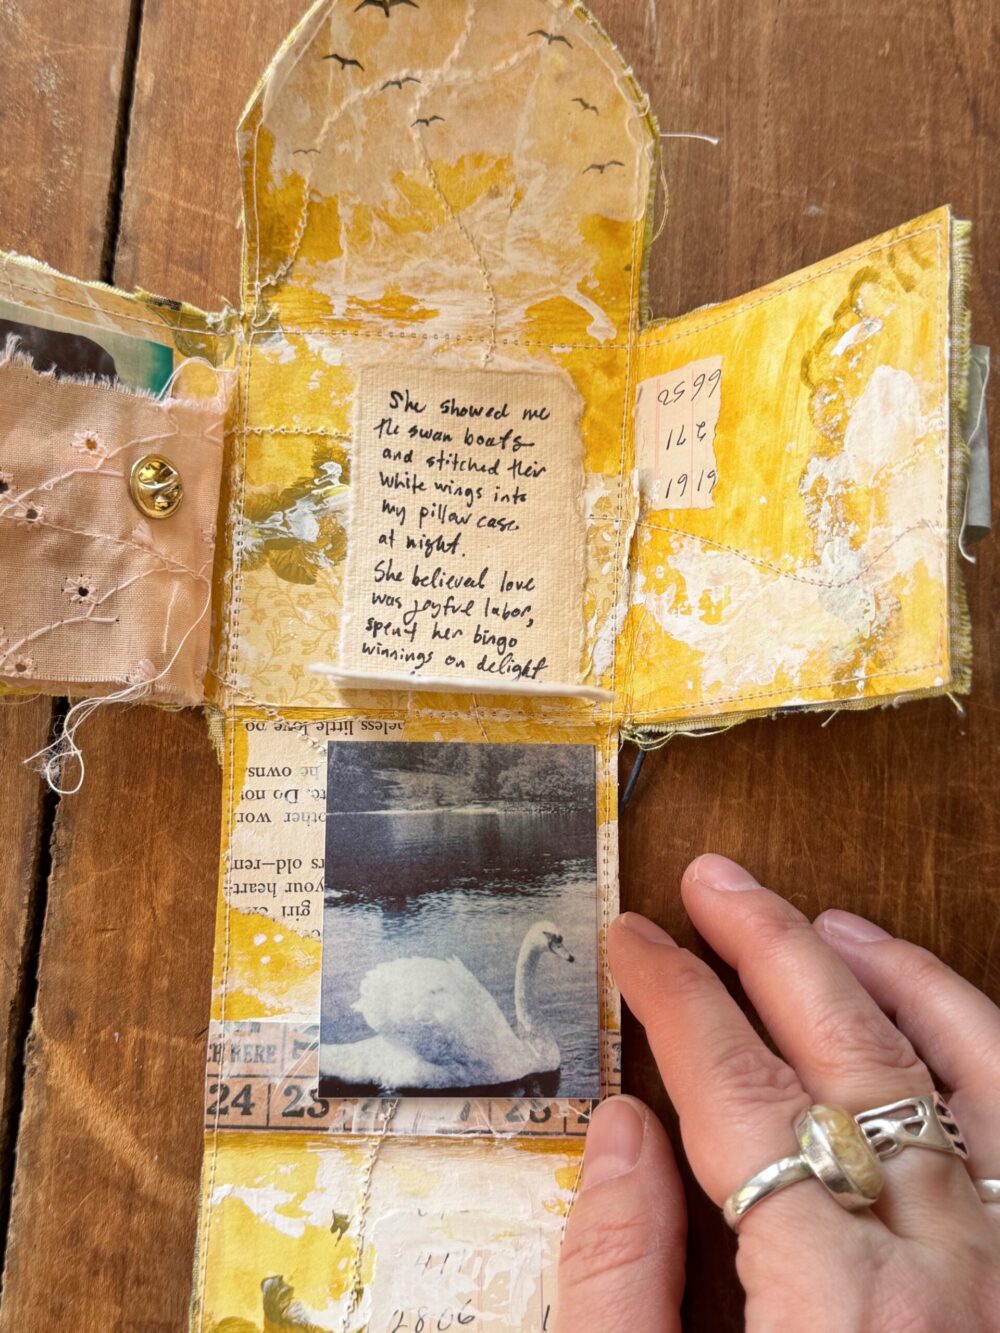 She showed me
the swan boats
and stitched their
white wings into
my pillow case
at night.
She believed love
was joyful labor,
spent her bingo
winnings on delight
6652
1271
6191
eless little love no
he owns.
te. Do not
other wor
rs old—ren
your heart-
girl
CH HERE
24 25 23
411
2806 1